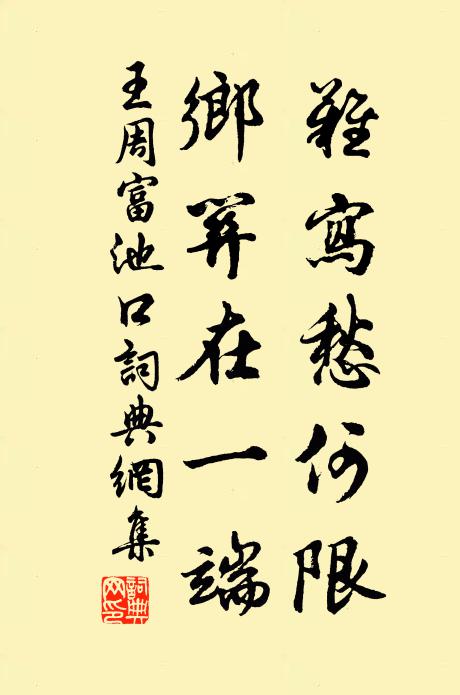 難寫愁何限
鄉關在一端
王周富池口詞典網集
詞典網印